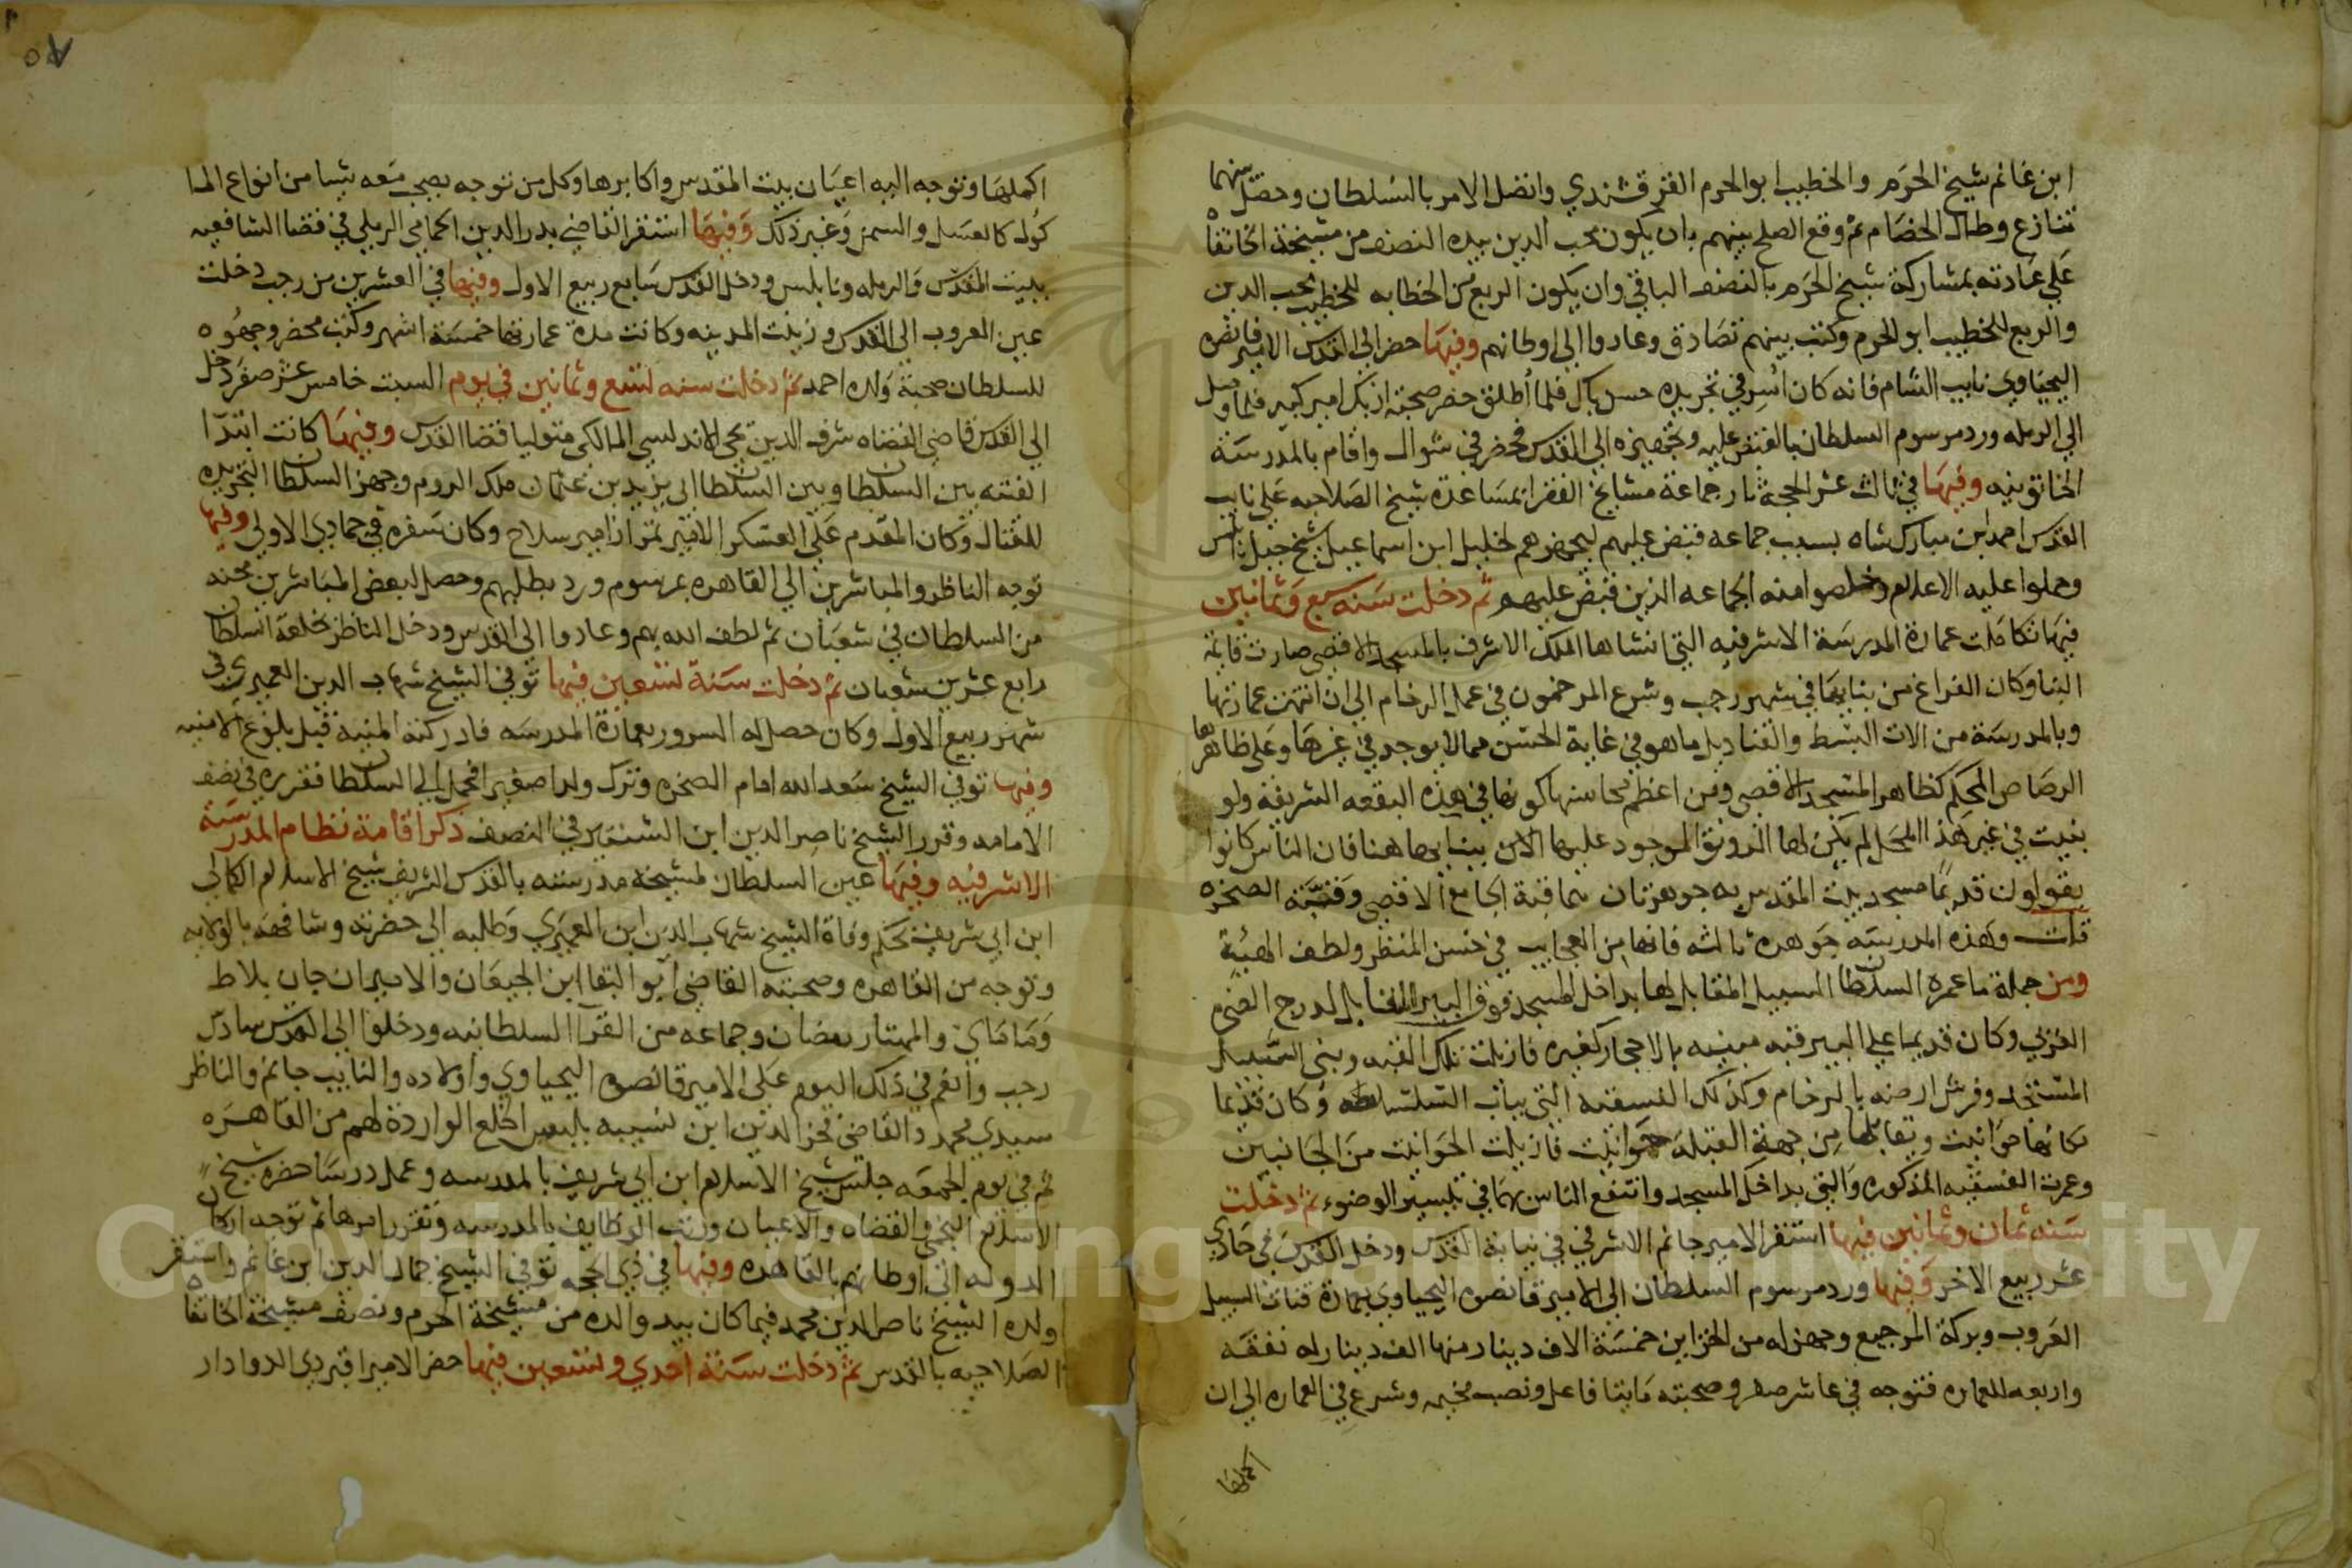 ابن غانم شيخ الحرم والخطيب ابو الحرم القرقشندي واتصل الامر بالسلطان وحصل بينهما
تنازع وطال الخصام ثم وقع الصلح بينهم بان يكون محب الدين بيده النصف من مشيخة الخانقاه
علي عادته بمشاركة شيخ الحرم بالنصف الباقي وان يكون الربع من الخطابه للخطيب محب الدين
والربع للخطيب ابو الحرم وكتب بينهم تصادق وعادوا الي اوطانهم وفيها حضر الي القدس الامير قانصوه
اليحياوي نايب الشام فانه كان اسر في تجريده حسن باك فلما أطلق حضر صحبة ازبك امير كبير فلما وصل
الي الرمله ورد مرسوم السلطان بالقبض عليه وتجهيزه الي القدس فحضر في شوال واقام بالمدرسة
الخاتونيه وفيها في ثالث عشر الحجة ثار جماعة مشايخ الفقرا بمساعدة شيخ الصلاحيه علي نايب
القدس احمد ابن مبارك شاه بسبب جماعه قبض عليهم ليجهزهم لخليل ابن اسماعيل شيخ جبل نابلس
وحملوا عليه الاعلام وخلصوا منه الجماعه الذين قبض عليهم ثم دخلت سنه سبع وثمانين
فيها تكاملت عمارة المدرسة الاشرفيه التي انشاها الملك الاشرف بالمسجد الاقصي صارت قايمة
البنا وكان الفراغ من بنايها في شهر رجب وشرع المرخمون في اعمل الرخام الي ان انتهت عمارتها
وبالمدرسة من الات البسط والقناديل ما هو في غاية الحسن مما لا يوجد في غيرها وعلي ظاهرها
الرصاص المحكم كظاهر المسجد الاقصي ومن اعظم محاسنها كونها في هذه البقعه الشريفة ولو
بنيت في غير هذا المحل لم يكن لها الرونق الموجود عليها الان ببنايها هنا فان الناس كانوا
يقولون قديما مسجد بيت المقدس به جوهرتان هما قبة الجامع الاقصي وقبة الصخره
قلت وهذه المدرسه جوهرة ثالثه فانها من العجايب في حسن المنظر ولطف الهيئة
ومن جملة ما عمره السلطان السبيل المقابل لها بداخل المسجد فوق البير المقابل لدرج الصخره
الغربي وكان قديما علي البير قبه مبنيه بالاحجار كغيره فازيلت تلك القبه وبني السبيل
المستجد وفرش ارضه بالرخام وكذلك الفسقيه التي بباب السلسله وكان قديما
مكانها حوانيت ويقابلها من جهة القبلة حوانيت فازيلت الحوانيت من الجانبين
وعمرت الفسقيه المذكوره والتي بداخل المسجد وانتفع الناس بهما في تيسير الوضوء ثم دخلت
سنه ثمان وثمانين فيها استقر الامير جانم الاشرفي في نيابة القدس ودخل القدس في حادي
عشر ربيع الاخر وفيها ورد مرسوم السلطان الي الامير قانصوه اليحياوي بعمارة قناة السبيل
العروب وبركة المرجيع وجهز له من الخزاين خمسة الاف دينار منها الف دينار له نفقه
واربعه للعماره فتوجه في عاشر صفر وصحبته مايتا فاعل ونصب مخيمه وشرع في العماره الي ان
اكملها
٨٥
اكملها وتوجه اليه اعيان بيت المقدس واكابرها وكل من توجه يصحب معه شيا من انواع الما
كول كالعسل والسمن وغير ذلك وفيها استقر القاضي بدر الدين الحمامي الرملي في قضا الشافعيه
ببيت المقدس والرمله ونابلس ودخل القدس سابع ربيع الاول وفيها في العشرين من رجب دخلت
عين العروب الي القدس وزينت المدينه وكانت مدة عمارتها خمسة اشهر وكتب محضر وجهزه
للسلطان صحبة ولده احمد ثم دخلت سنه تسع وثمانين في يوم السبت خامس عشر صفر دخل
الي القدس قاضي القضاه شرف الدين يحي الاندلسي المالكي متوليا قضا القدس وفيها كانت ابتدا
الفتنه بين السلطان وبين السلطان ابي يزيد بن عثمان ملك الروم وجهز السلطان التجريده
للقتال وكان المقدم علي العسكر الامير تمراز امير سلاح وكان سفره في جمادي الاولي وفيها
توجه الناظر والمباشرين الي القاهره بمرسوم ورد بطلبهم وحصل لبعض المباشرين محنه
من السلطان في شعبان ثم لطف الله بهم وعادوا الي القدس ودخل الناظر بخلعة السلطان
رابع عشرين شعبان ثم دخلت سنة تسعين فيها توفي الشيخ شهاب الدين العميري في
شهر ربيع الاول وكان حصل له السرور بعمارة المدرسه فادركته المنيه قبل بلوغ الامنيه
وفيها توفي الشيخ سعد الله امام الصخره وترك ولدا صغيرا فحمل الي السلطان فقرره في نصف
الامامه وقرر الشيخ ناصر الدين ابن الشنتير في النصف ذكر اقامة نظام المدرسة
الاشرفيه وفيها عين السلطان لمشيخة مدرسته بالقدس الشريف شيخ الاسلام الكمالي
ابن ابي شريف بحكم وفاة الشيخ شهاب الدين ابن العميري وطلبه الي حضرته وشافهه بالولايه
وتوجه من القاهره وصحبته القاضي ابو البقا ابن الجيعان والاميران جان بلاط
وماماي والمهتار رمضان وجماعه من القرا السلطانيه ودخلوا الي القدس سادس
رجب وانعم في ذلك اليوم علي الامير قانصوه اليحياوي واولاده والنايب جانم والناظر
سيدي محمد والقاضي فخر الدين ابن نسيبه بلبس الخلع الوارده لهم من القاهره
ثم في يوم الجمعه جلس شيخ الاسلام ابن ابي شريف بالمدرسه وعمل درسا حضره شيخ
الاسلام النجمي والقضاه والاعيان ورتب الوظايف بالمدرسه وتقرر امرها ثم توجه اركان
الدوله الي اوطانهم بالقاهره وفيها في ذي الحجه توفي الشيخ جمال الدين ابن غانم واستقر
ولده الشيخ ناصر الدين محمد فيما كان بيد والده من مشيخة الحرم ونصف مشيخة الخانقاه
الصلاحيه بالقدس ثم دخلت سنة احدي وتسعين فيها حضر الامير اقبردي الدوادار